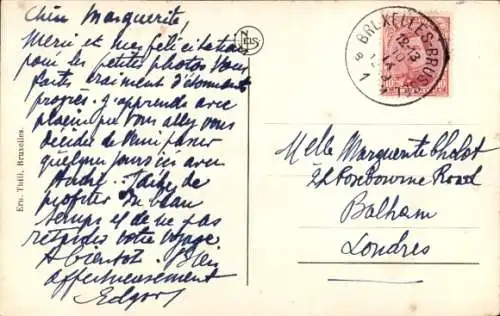 Chère Marguerite,
Merci et mes félicitations
pour les petites photos. Vous
faites vraiment d'étonnants
progrès. J'apprends avec
plaisir que vous allez vous
décider de venir passer
quelques jours ici avec
André. Tâchez de
profiter du beau
temps et de ne pas
retarder votre voyage.
A bientôt. Bien
affectueusement
Edgard
Ern. Thill, Bruxelles.
NELS
BRUXELLES-BRUSSEL
12-13
10
IX
Melle Marguerite Chalot
22 Foxbourne Road
Balham
Londres